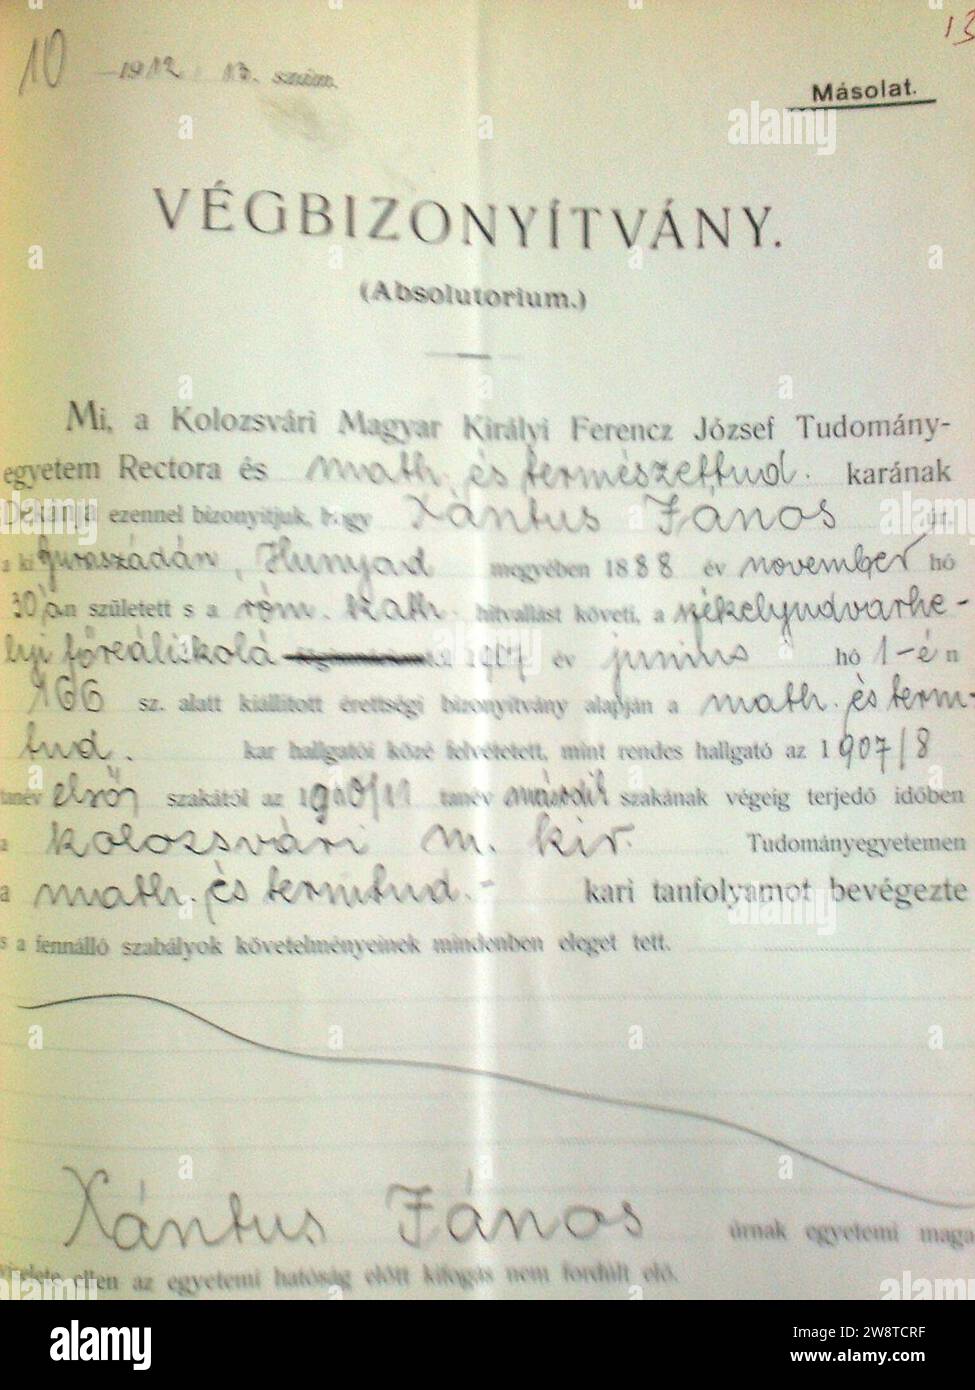 10 1912 13. szám.
13
Másolat.
VÉGBIZONYÍTVÁNY.
(Absolutorium.)
Mi, a Kolozsvári Magyar Királyi Ferencz József Tudomány-
egyetem Rectora és math. és természettud. karának
Dékánja ezennel bizonyítjuk, hogy Xántus János úr.
a ki Guraszádán, Hunyad megyében 1888 év november hó
30 án született s a róm. kath. hitvallást követi, a székelyudvarhe-
lyi főreáliskolá 1907 év junius hó 1-én
166 sz. alatt kiállított érettségi bizonyítvány alapján a math. és term.
tud. kar hallgatói közé felvétetett, mint rendes hallgató az 1907/8
tanév első szakától az 1910/11 tanév második szakának végeig terjedő időben
a kolozsvári m. kir. Tudományegyetemen
a math. és termttud.- kari tanfolyamot bevégezte
s a fennálló szabályok követelményeinek mindenben eleget tett.
Xántus János úrnak egyetemi maga
viselete ellen az egyetemi hatóság előtt kifogás nem fordúlt elő.
alamy
Image ID: 2W8TCRF
www.alamy.com